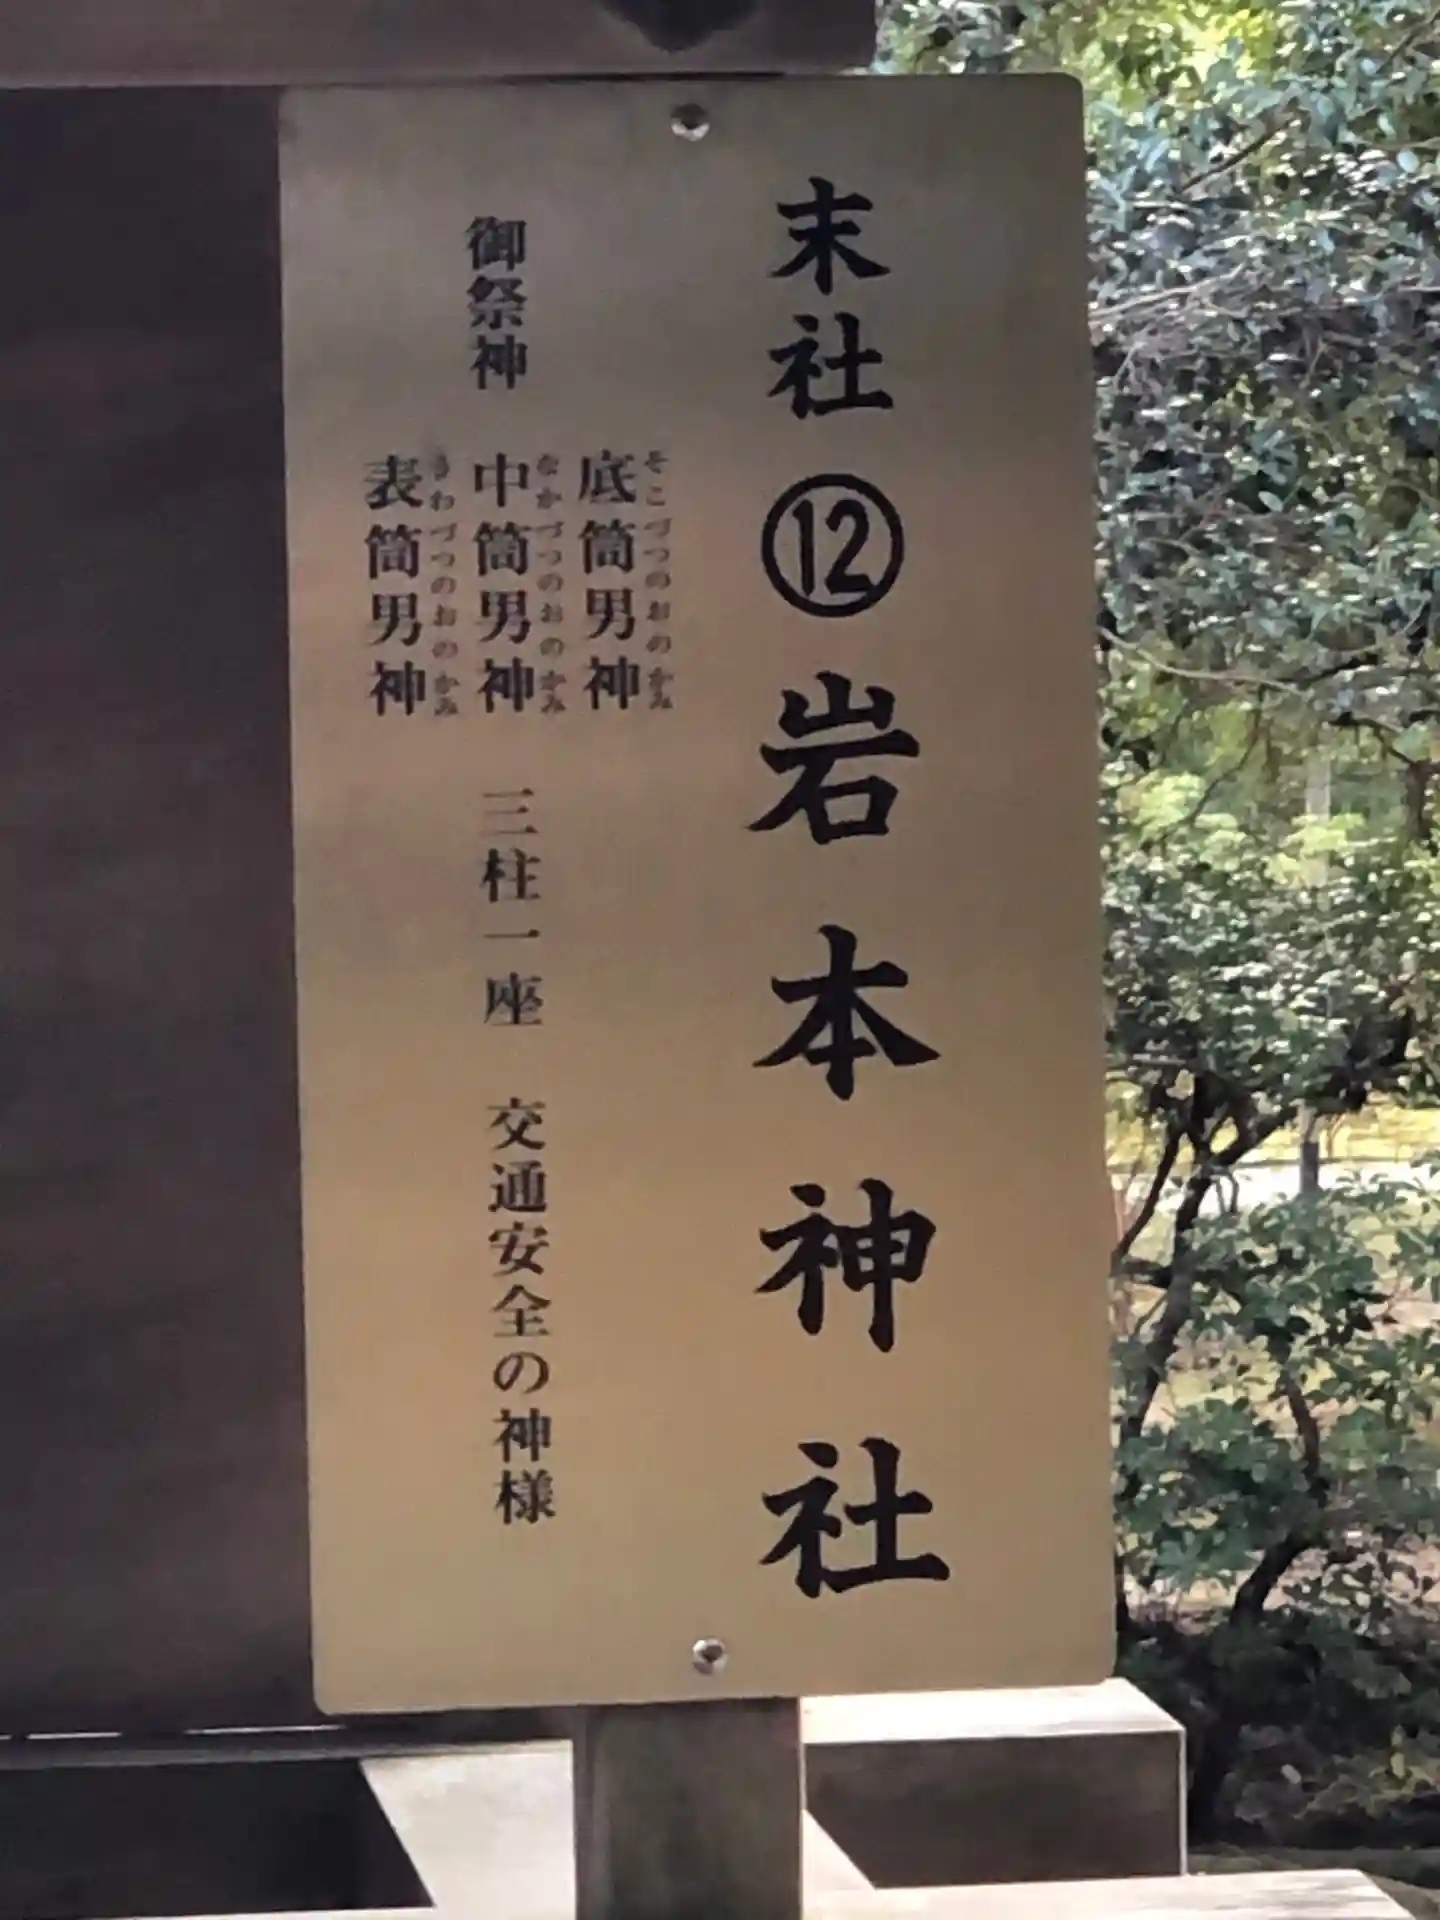 末社 ⑫ 岩本神社
御祭神
底筒男神
そこづつのおのかみ
中筒男神
なかづつのおのかみ
表筒男神
うわづつのおのかみ
三柱一座 交通安全の神様